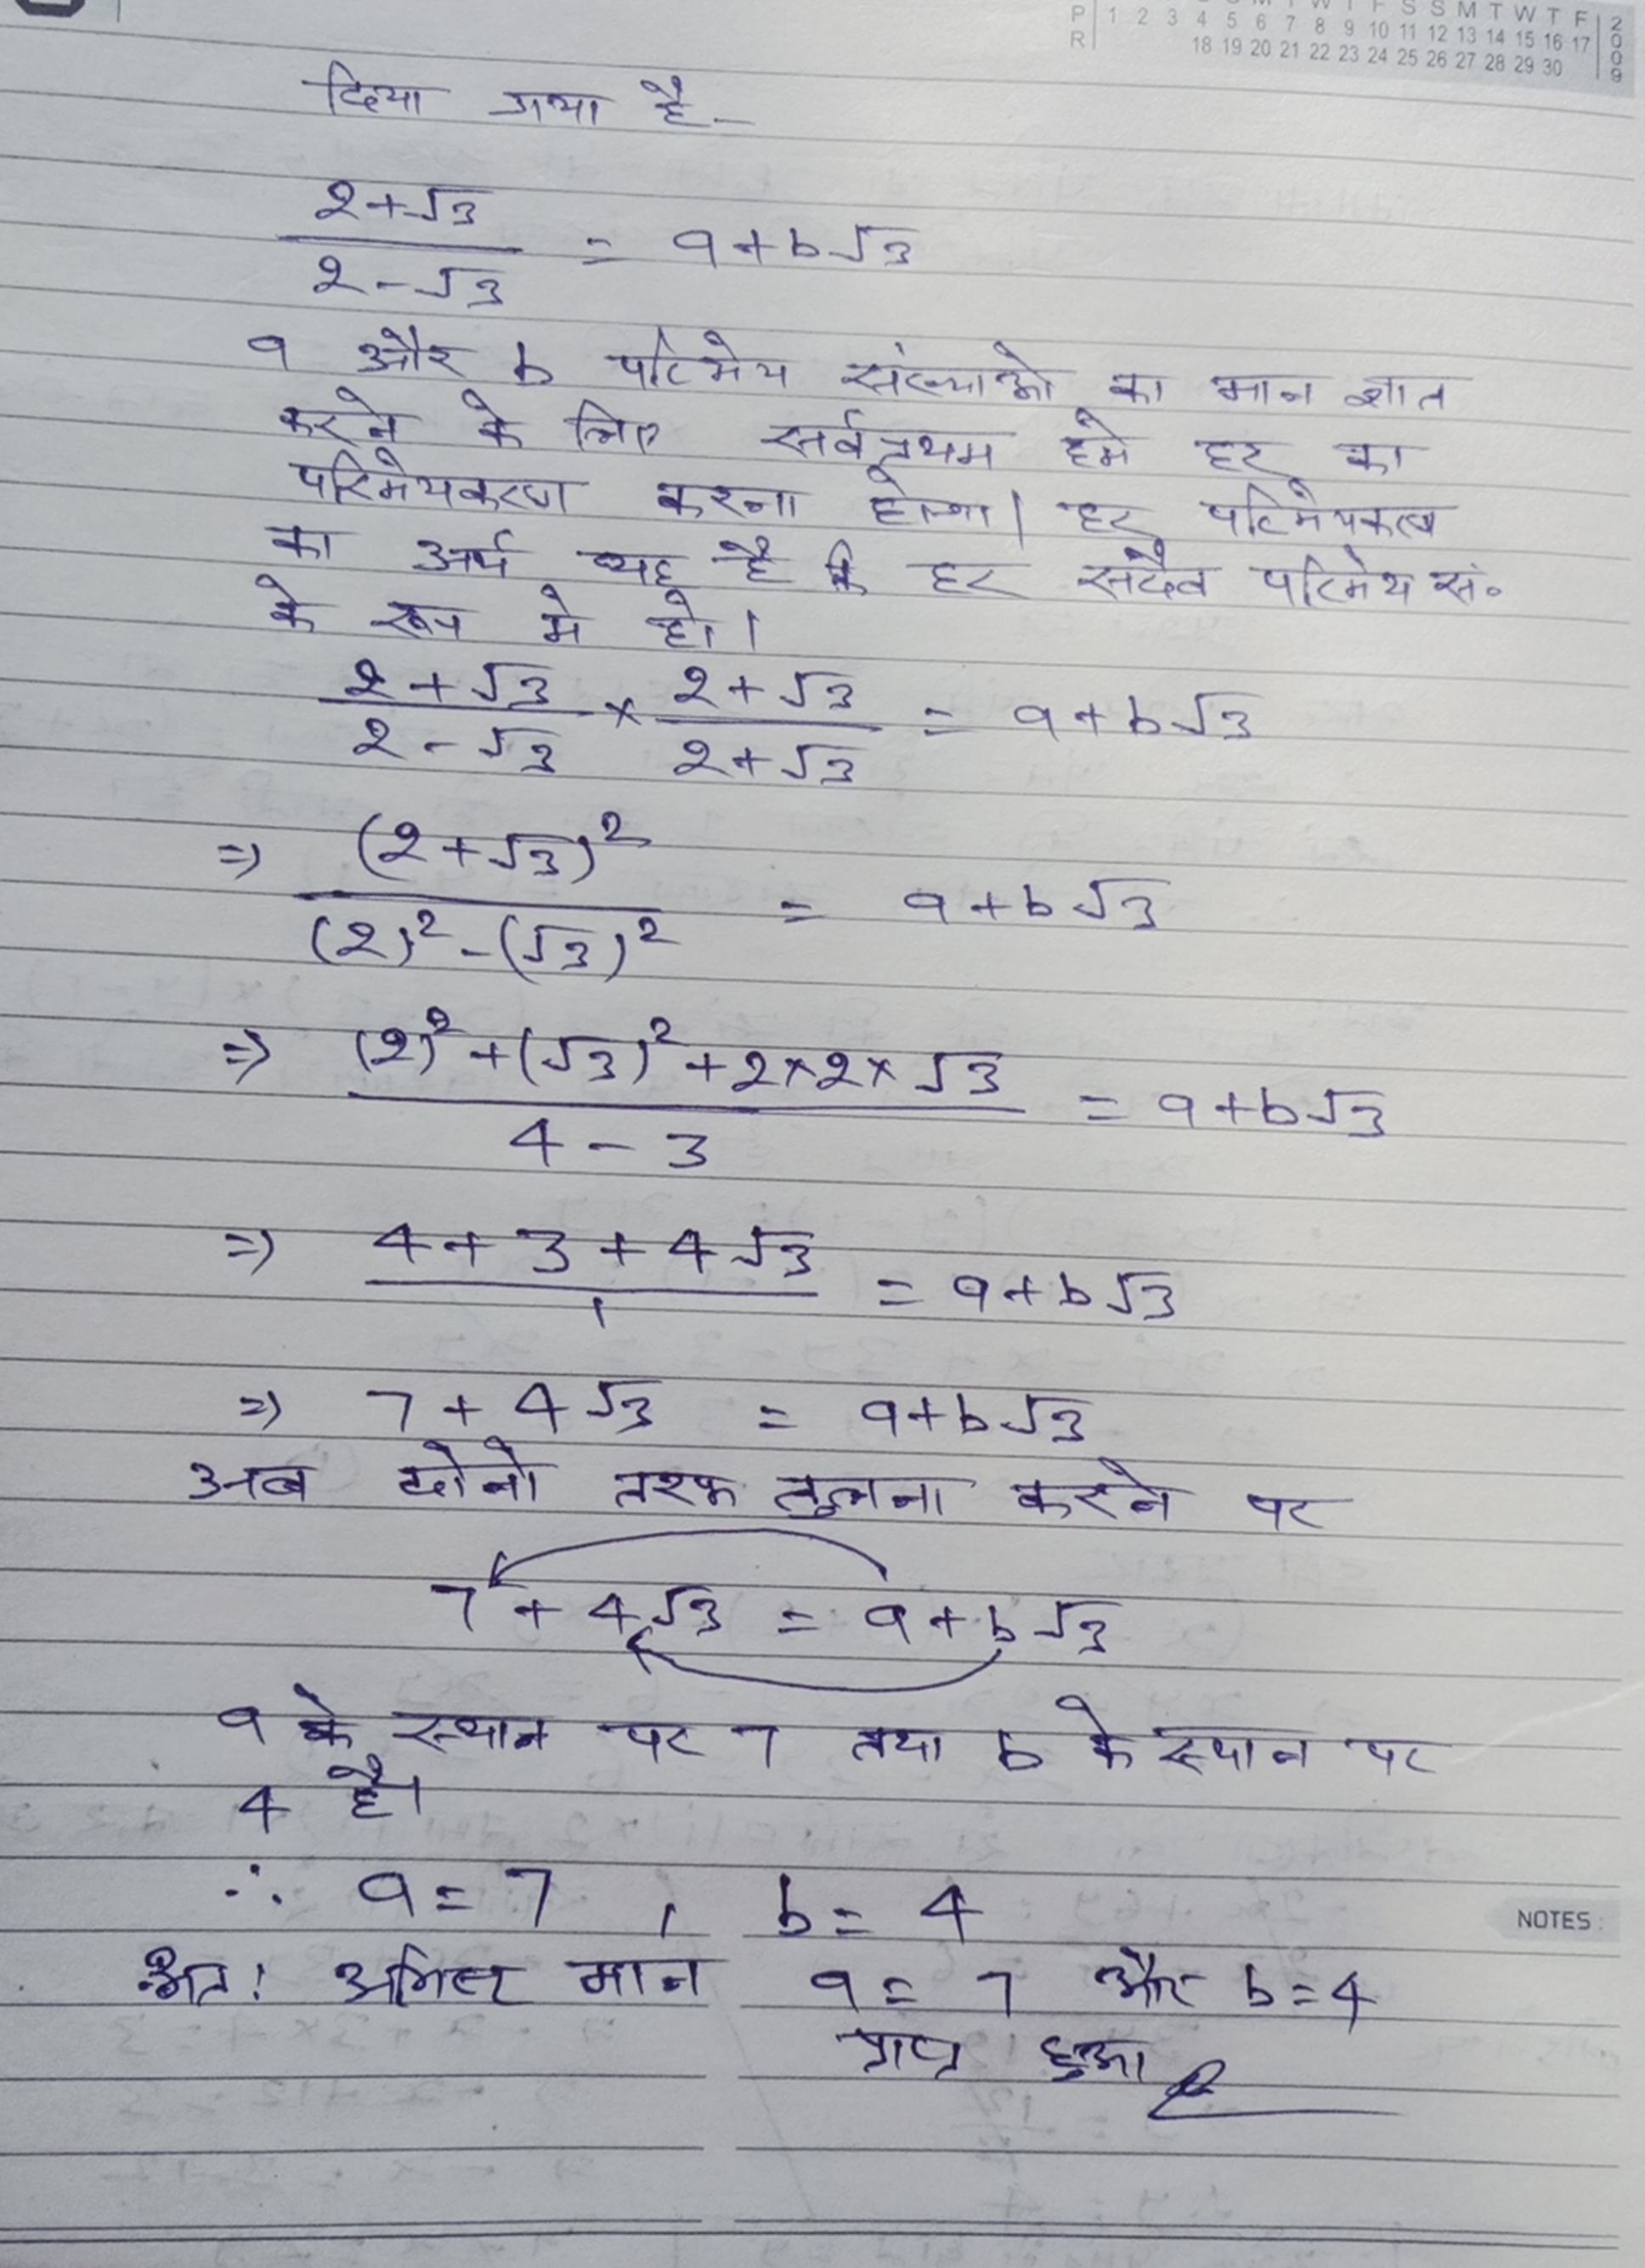 S M T W T F S S M T W T F
P R 1 2 3 4 5 6 7 8 9 10 11 12 13 14 15 16 17 2009
18 19 20 21 22 23 24 25 26 27 28 29 30
दिया गया है-
2+√3 / 2-√3 = a+b√3
a और b परिमेय संख्याओ का मान ज्ञात
करने के लिए सर्वप्रथम हमे हर का
परिमेयकरण करना होगा। हर परिमेयकरण
का अर्थ यह है कि हर सदैव परिमेय सं०
के रूप मे हो।
2+√3 / 2-√3 × 2+√3 / 2+√3 = a+b√3
⇒ (2+√3)² / (2)²-(√3)² = a+b√3
⇒ (2)²+(√3)²+2×2×√3 / 4-3 = a+b√3
⇒ 4+3+4√3 / 1 = a+b√3
⇒ 7+4√3 = a+b√3
अब दोनो तरफ तुलना करने पर
7+4√3 = a+b√3
a के स्थान पर 7 तथा b के स्थान पर
4 है।
∴ a=7 , b=4
NOTES:
अत: अभिष्ट मान a=7 और b=4
प्राप्त हुआ